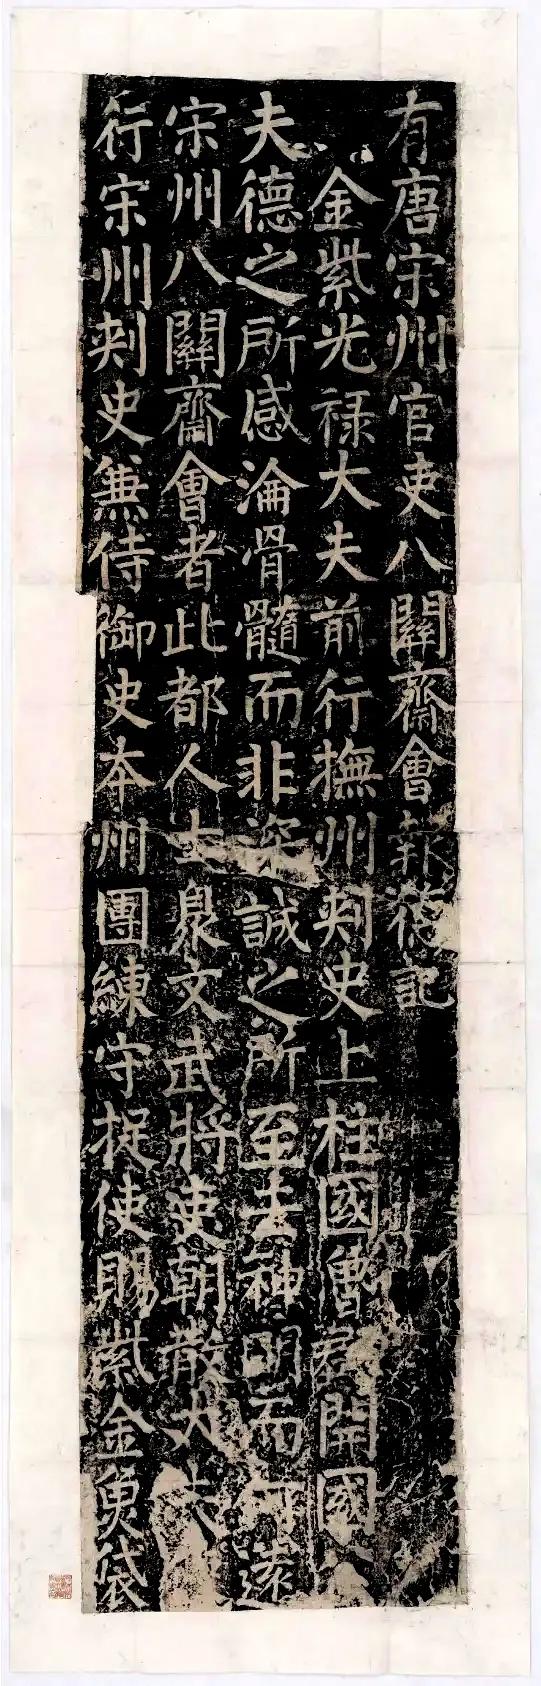 有唐宋州官吏八關齋會報德記
金紫光祿大夫前行撫州刾史上柱國魯郡開國
夫德之所感淪骨髓而非深誠之所至去神明而何遠
宋州八關齋會者此都人士眾文武將吏朝散大夫
行宋州刾史兼侍御史本州團練守捉使賜紫金魚袋